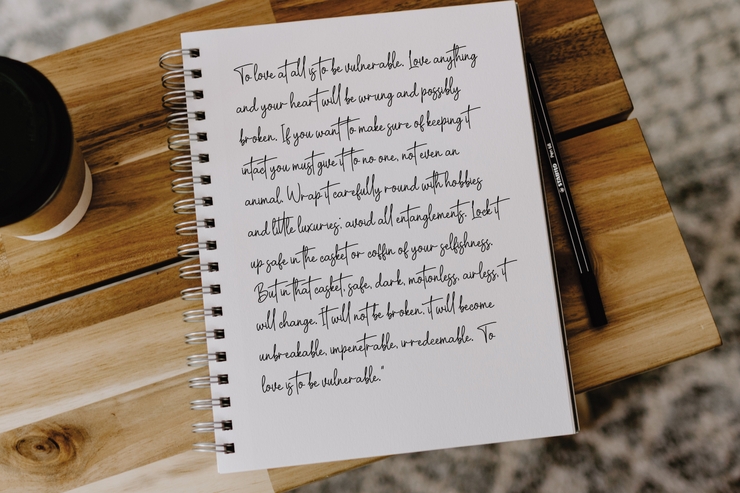 To love at all is to be vulnerable. Love anything
and your heart will be wrung and possibly
broken. If you want to make sure of keeping it
intact you must give it to no one, not even an
animal. Wrap it carefully round with hobbies
and little luxuries; avoid all entanglements. Lock it
up safe in the casket or coffin of your selfishness.
But in that casket, safe, dark, motionless, airless, it
will change. It will not be broken, it will become
unbreakable, impenetrable, irredeemable. To
love is to be vulnerable."
STABILO